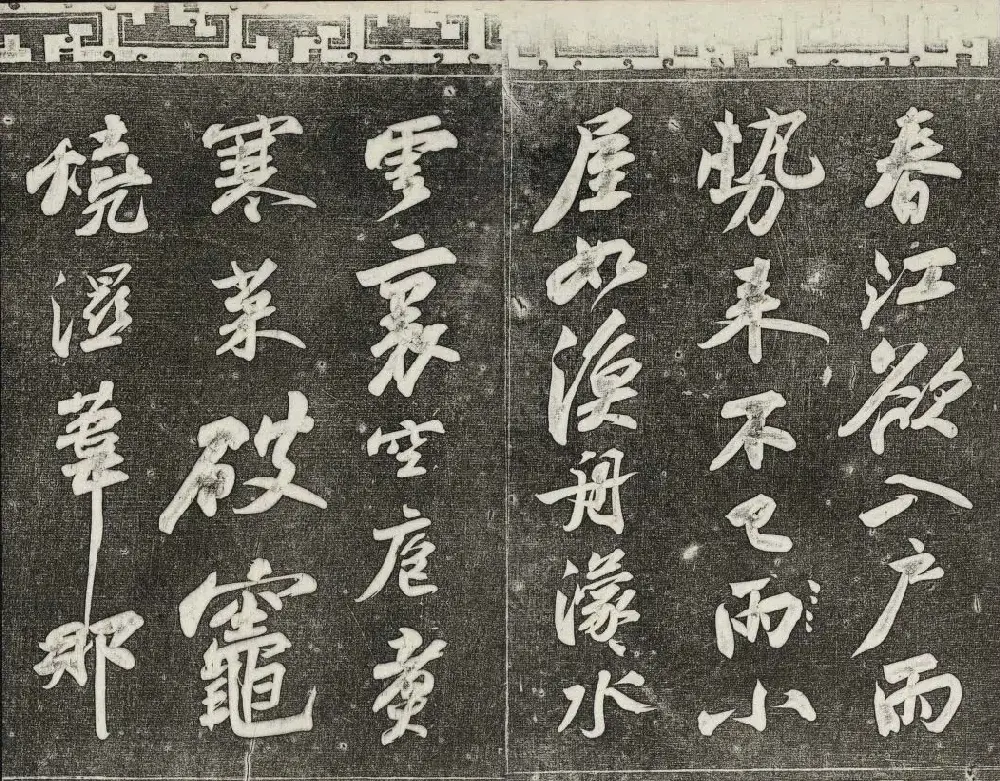 春江欲入戶雨
勢来不已雨小
屋如漁舟濛〻水
雲裏空庖煮
寒菜破竈
燒濕葦那